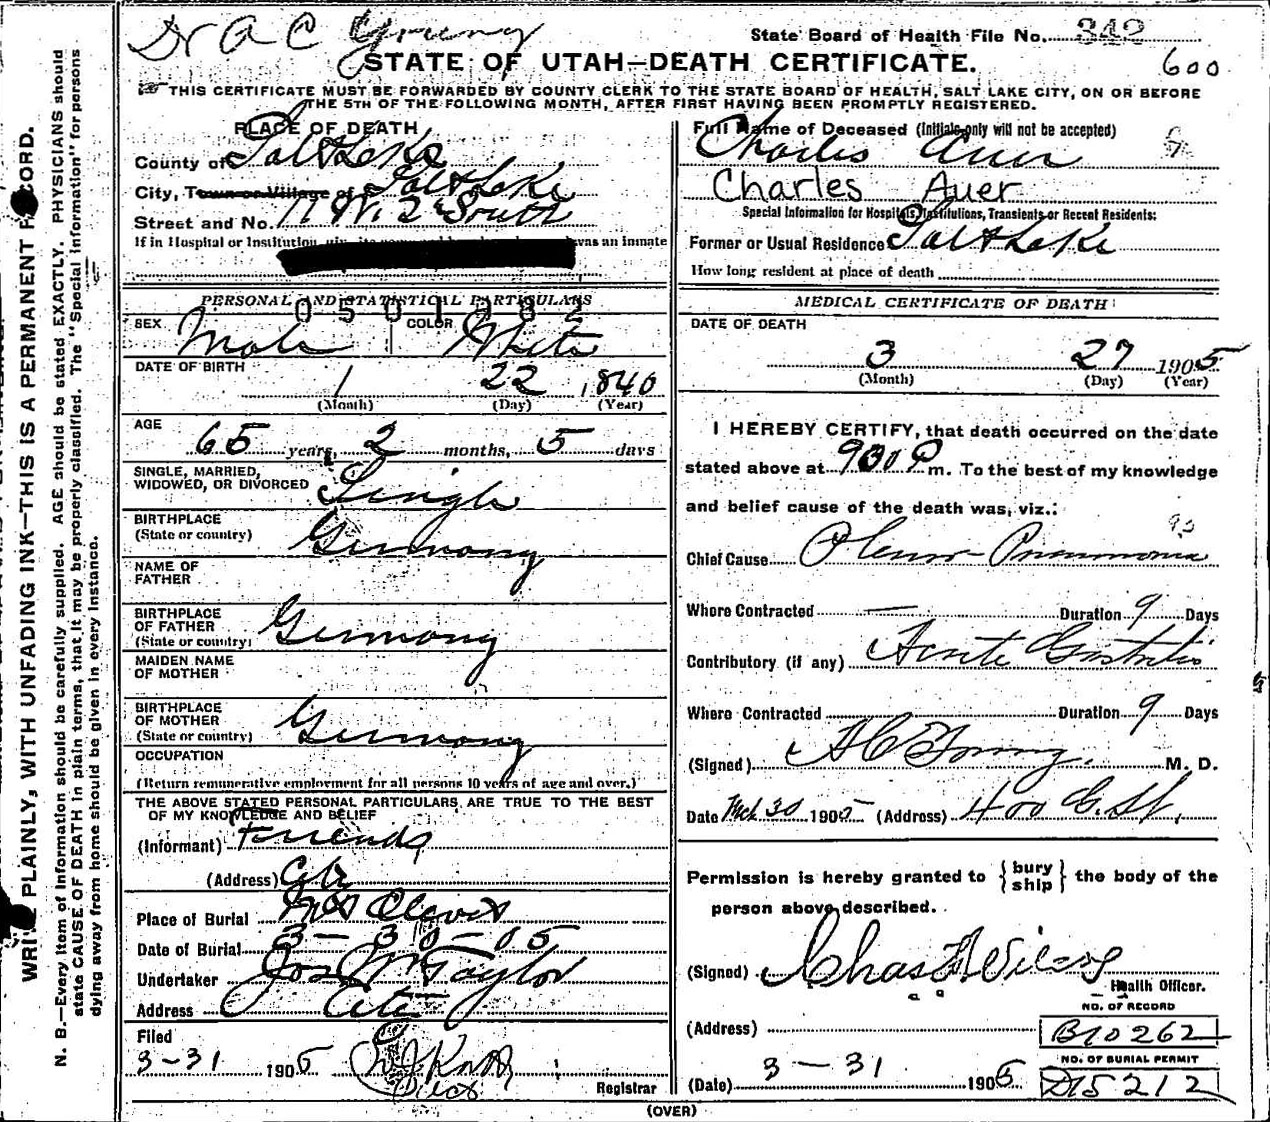 Dr A C
State Board of Health File No. 342
STATE OF UTAH—DEATH CERTIFICATE.
600
THIS CERTIFICATE MUST BE FORWARDED BY COUNTY CLERK TO THE STATE BOARD OF HEALTH, SALT LAKE CITY, ON OR BEFORE
THE 5TH OF THE FOLLOWING MONTH, AFTER FIRST HAVING BEEN PROMPTLY REGISTERED.
WRITE PLAINLY, WITH UNFADING INK—THIS IS A PERMANENT RECORD.
N. B.—Every item of Information should be carefully supplied. AGE should be stated EXACTLY. PHYSICIANS should
state CAUSE OF DEATH in plain terms, that it may be properly classified. The "Special Information" for persons
dying away from home should be given in every instance.
PLACE OF DEATH
County of Salt Lake
City, Town or Village of Salt Lake
Street and No. 11 W. 2d South
If in Hospital or Institution, giv its name was an inmate
PERSONAL AND STATISTICAL PARTICULARS
0501982
SEX Male COLOR White
DATE OF BIRTH
1 22 1840
(Month) (Day) (Year)
AGE
65 years, 2 months, 5 days
SINGLE, MARRIED,
WIDOWED, OR DIVORCED Single
BIRTHPLACE
(State or country) Germany
NAME OF
FATHER
BIRTHPLACE
OF FATHER
(State or country) Germany
MAIDEN NAME
OF MOTHER
BIRTHPLACE
OF MOTHER
(State or country) Germany
OCCUPATION
(Return remunerative employment for all persons 10 years of age and over.)
THE ABOVE STATED PERSONAL PARTICULARS ARE TRUE TO THE BEST
OF MY KNOWLEDGE AND BELIEF
(Informant) Friends
(Address) City
Place of Burial Mt Olivet
Date of Burial 3-30-05
Undertaker Jos Wm Taylor
Address City
Filed
3-31 1905
Registrar
Full Name of Deceased (Initials only will not be accepted)
Charles Auer
Charles Auer
Special Information for Hospitals, Institutions, Transients or Recent Residents:
Former or Usual Residence Salt Lake
How long resident at place of death
MEDICAL CERTIFICATE OF DEATH
DATE OF DEATH
3 27 1905
(Month) (Day) (Year)
I HEREBY CERTIFY, that death occurred on the date
stated above at 930 P m. To the best of my knowledge
and belief cause of the death was, viz.:
93
Chief Cause Pleuro-Pneumonia
Where Contracted — Duration 9 Days
Contributory (if any) Acute Gastritis
Where Contracted Duration 9 Days
(Signed) M. D.
Date Mch 30 1905 (Address) 400 C. St.
Permission is hereby granted to {bury
ship} the body of the
person above described.
(Signed) Chas
Health Officer.
NO. OF RECORD
(Address) B10262
NO. OF BURIAL PERMIT
(Date) 3-31 1905 D15212
(OVER)